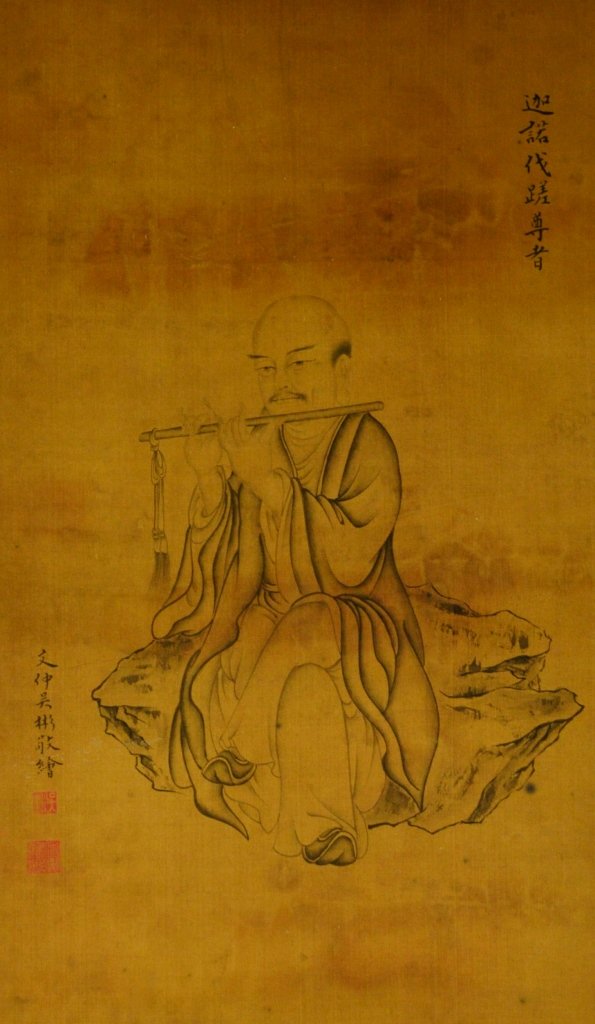 迦諾伐蹉尊者
文仲吳彬敬繪